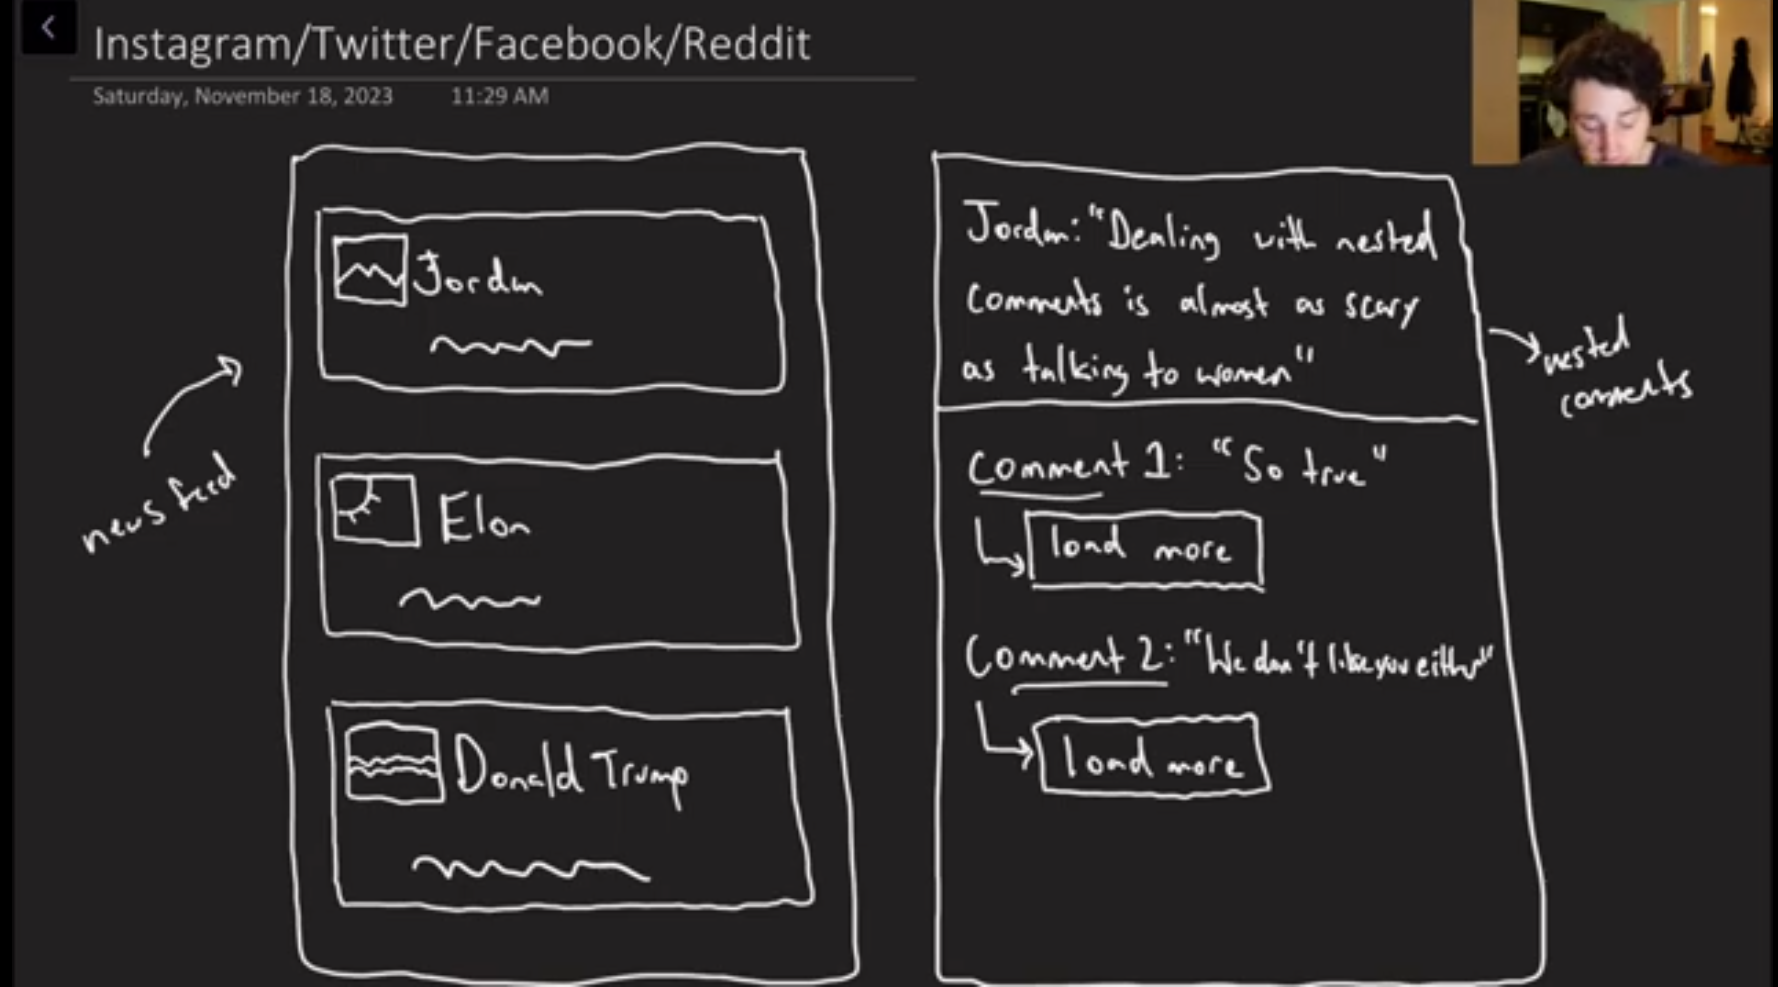 Instagram/Twitter/Facebook/Reddit
Saturday, November 18, 2023 11:29 AM
news feed
Jordan
Elon
Donald Trump
Jordan: "Dealing with nested
comments is almost as scary
as talking to women"
nested
comments
Comment 1: "So true"
load more
Comment 2: "We don't like you either"
load more